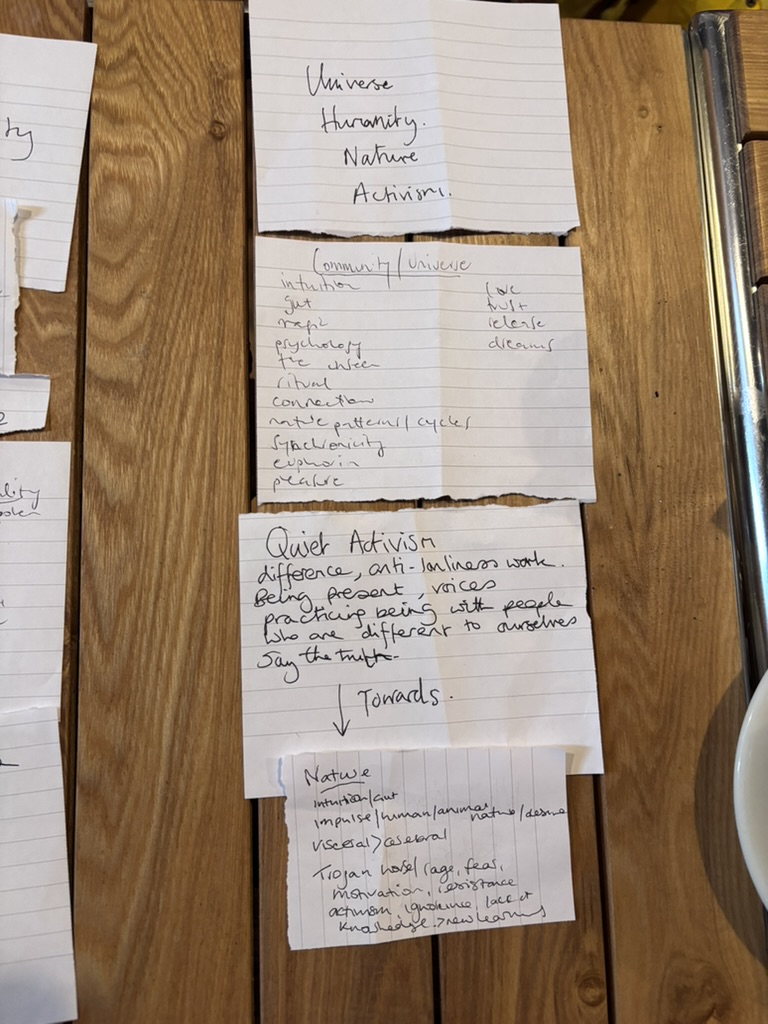 Universe
Humanity.
Nature
Activism.
Community/Universe
intuition
gut
magic
psychology
the unseen
ritual
connection
nature patterns/cycles
synchronicity
euphoria
pleasure
love
trust
release
dreams
Quiet Activism
difference, anti-lonliness work.
Being present, voices
practicing being with people
who are different to ourselves
Say the truth
↓ Towards.
Nature
intuition/Gut
impulse/human/animal nature/desire
visceral>cerebral
Trojan horse/rage, fear,
motivation, resistance
activism, ignorance, lack of
knowledge.>new learning